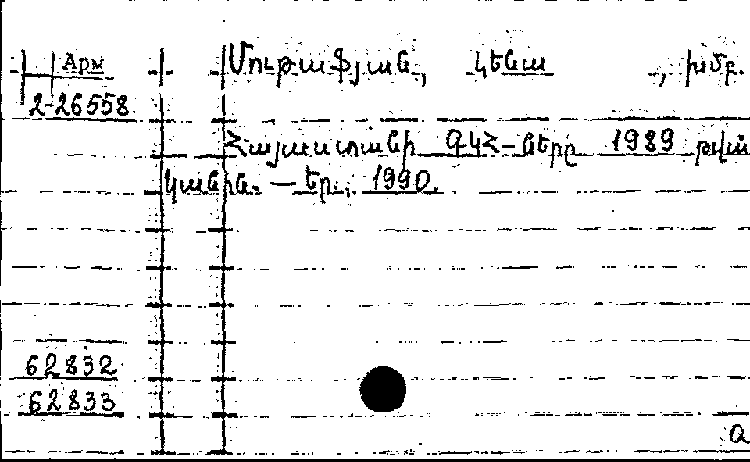 Арм
2-26558
Մութաֆյան, Լենա, խմբ.
Հայաստանի ԳԿՀ-ները 1989 թվա
կանին. — Եր., 1990.
62832
62833